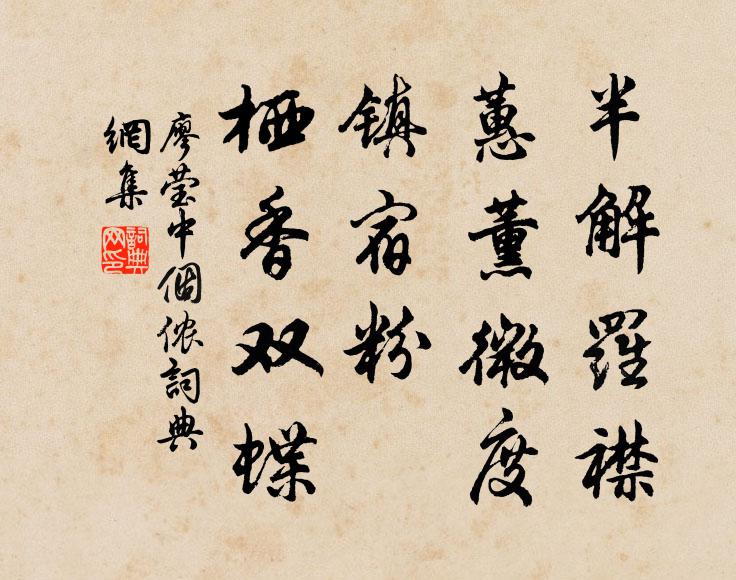 半解羅襟
蕙薰微度
镇宿粉
栖香双蝶
廖莹中個侬詞典
網集
詞典网印